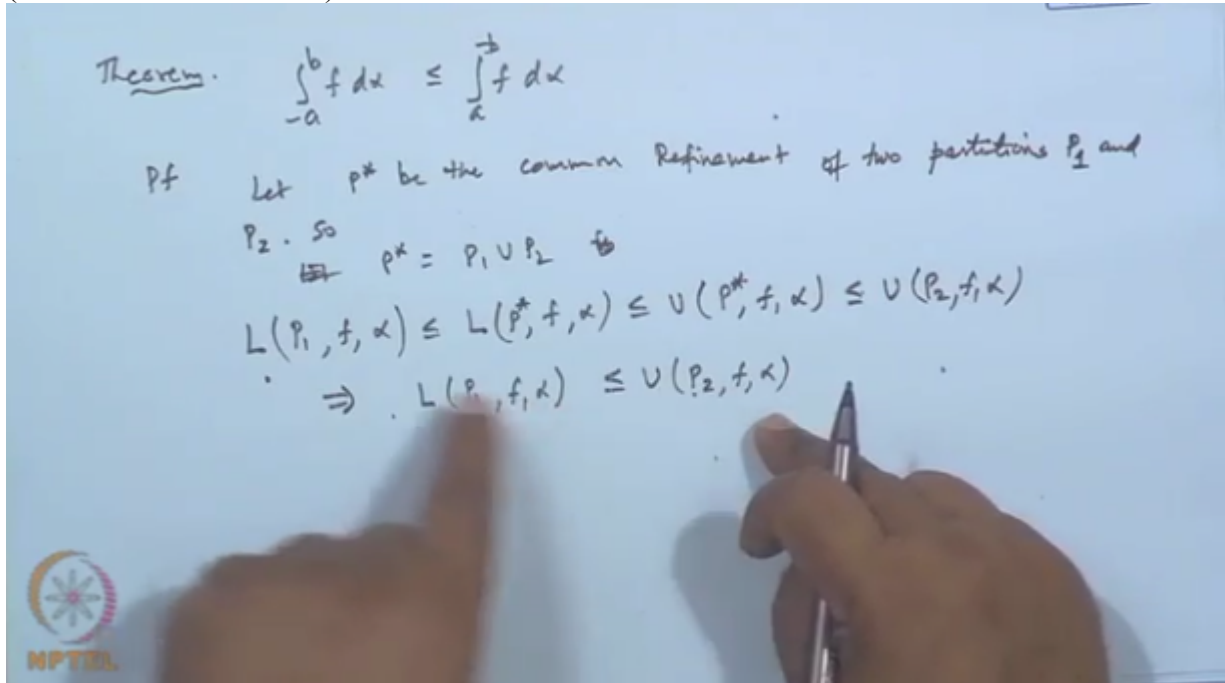 Theorem. ∫_{-a}^{b} f dα ≤ ∫_{a}^{-b} f dα
Pf Let P* be the common Refinement of two partitions P1 and
P2. So
P* = P1 ∪ P2
L(P1, f, α) ≤ L(P*, f, α) ≤ U(P*, f, α) ≤ U(P2, f, α)
⇒ L(P1, f, α) ≤ U(P2, f, α)
NPTEL